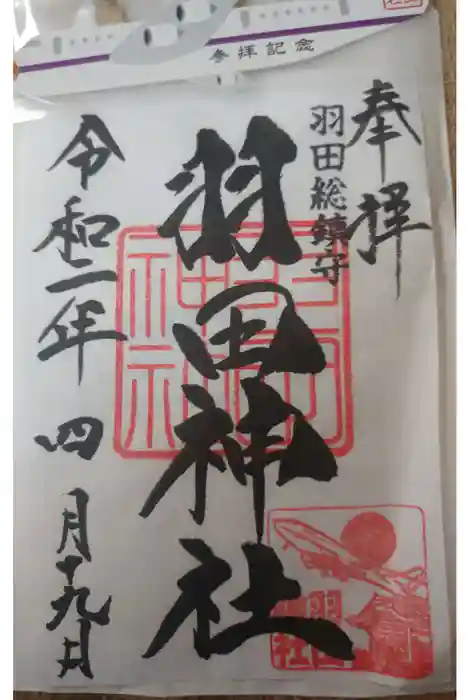 参拝記念
奉拝
羽田総鎮守
羽田神社
令和二年四月十九日
羽田神社